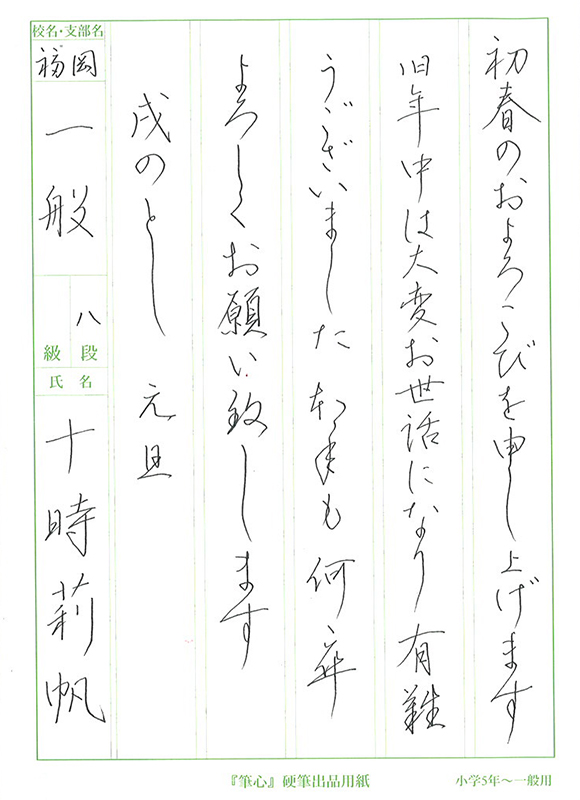 初春のおよろこびを申し上げます
旧年中は大変お世話になり有難
うございました 本年も何卒
よろしくお願い致します
戌のとし 元旦
校名・支部名
福岡
一般
八
級 段
氏 名
十時莉帆
『筆心』硬筆出品用紙
小学5年～一般用